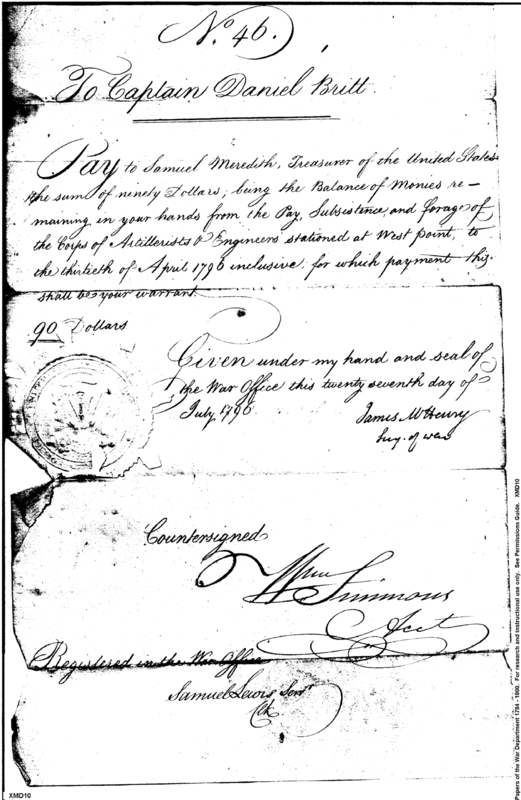 No. 46.
To Captain Daniel Britt
Pay to Samuel Meredith, Treasurer of the United States
the sum of ninety Dollars; being the Balance of Monies re-
maining in your hands from the Pay, Subsistence, and forage of
the Corps of Artillerists & Engineers stationed at West Point, to
the thirtieth of April 1796 inclusive. for which payment this
shall be your warrant.
90 Dollars
Given under my hand and seal of
the War Office this twenty seventh day of
July 1796
James McHenry
Secy. of war
Countersigned
Wm Simmons
Acct
Registered in the War Office
Samuel Lewis Senr.
Clk.
Papers of the War Department 1784 -1800. For research and instructional use only. See Permissions Guide. XMD10
XMD10